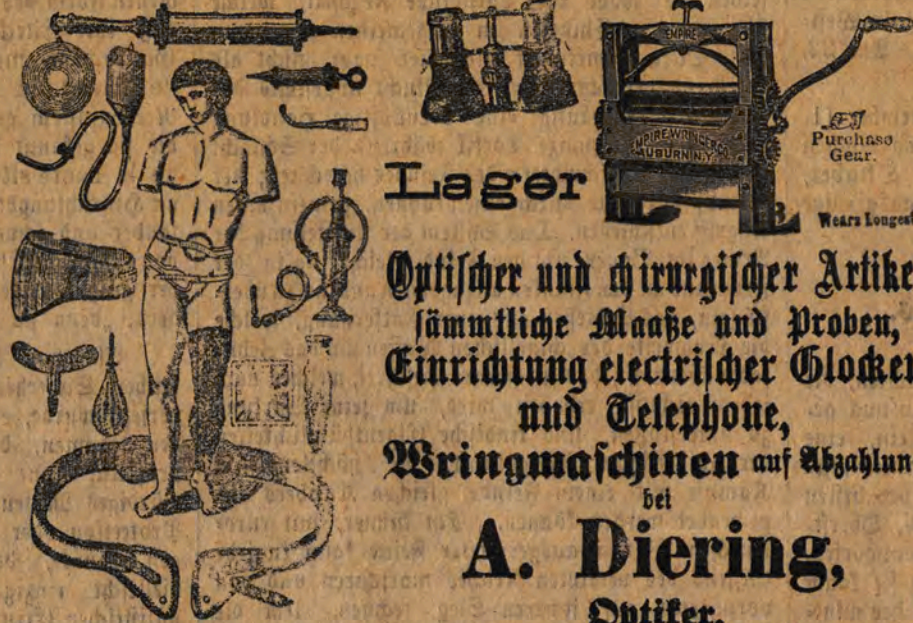 EMPIRE
EMPIRE WRINGER CO.
AUBURN N.Y.
Purchase
Gear.
Wears Longest
Lager
Optiſcher und chirurgiſcher Artike
ſämmtliche Maaße und Proben,
Einrichtung electriſcher Glocken
und Telephone,
Wringmaſchinen auf Abzahlun
bei
A. Diering,
Optiker.